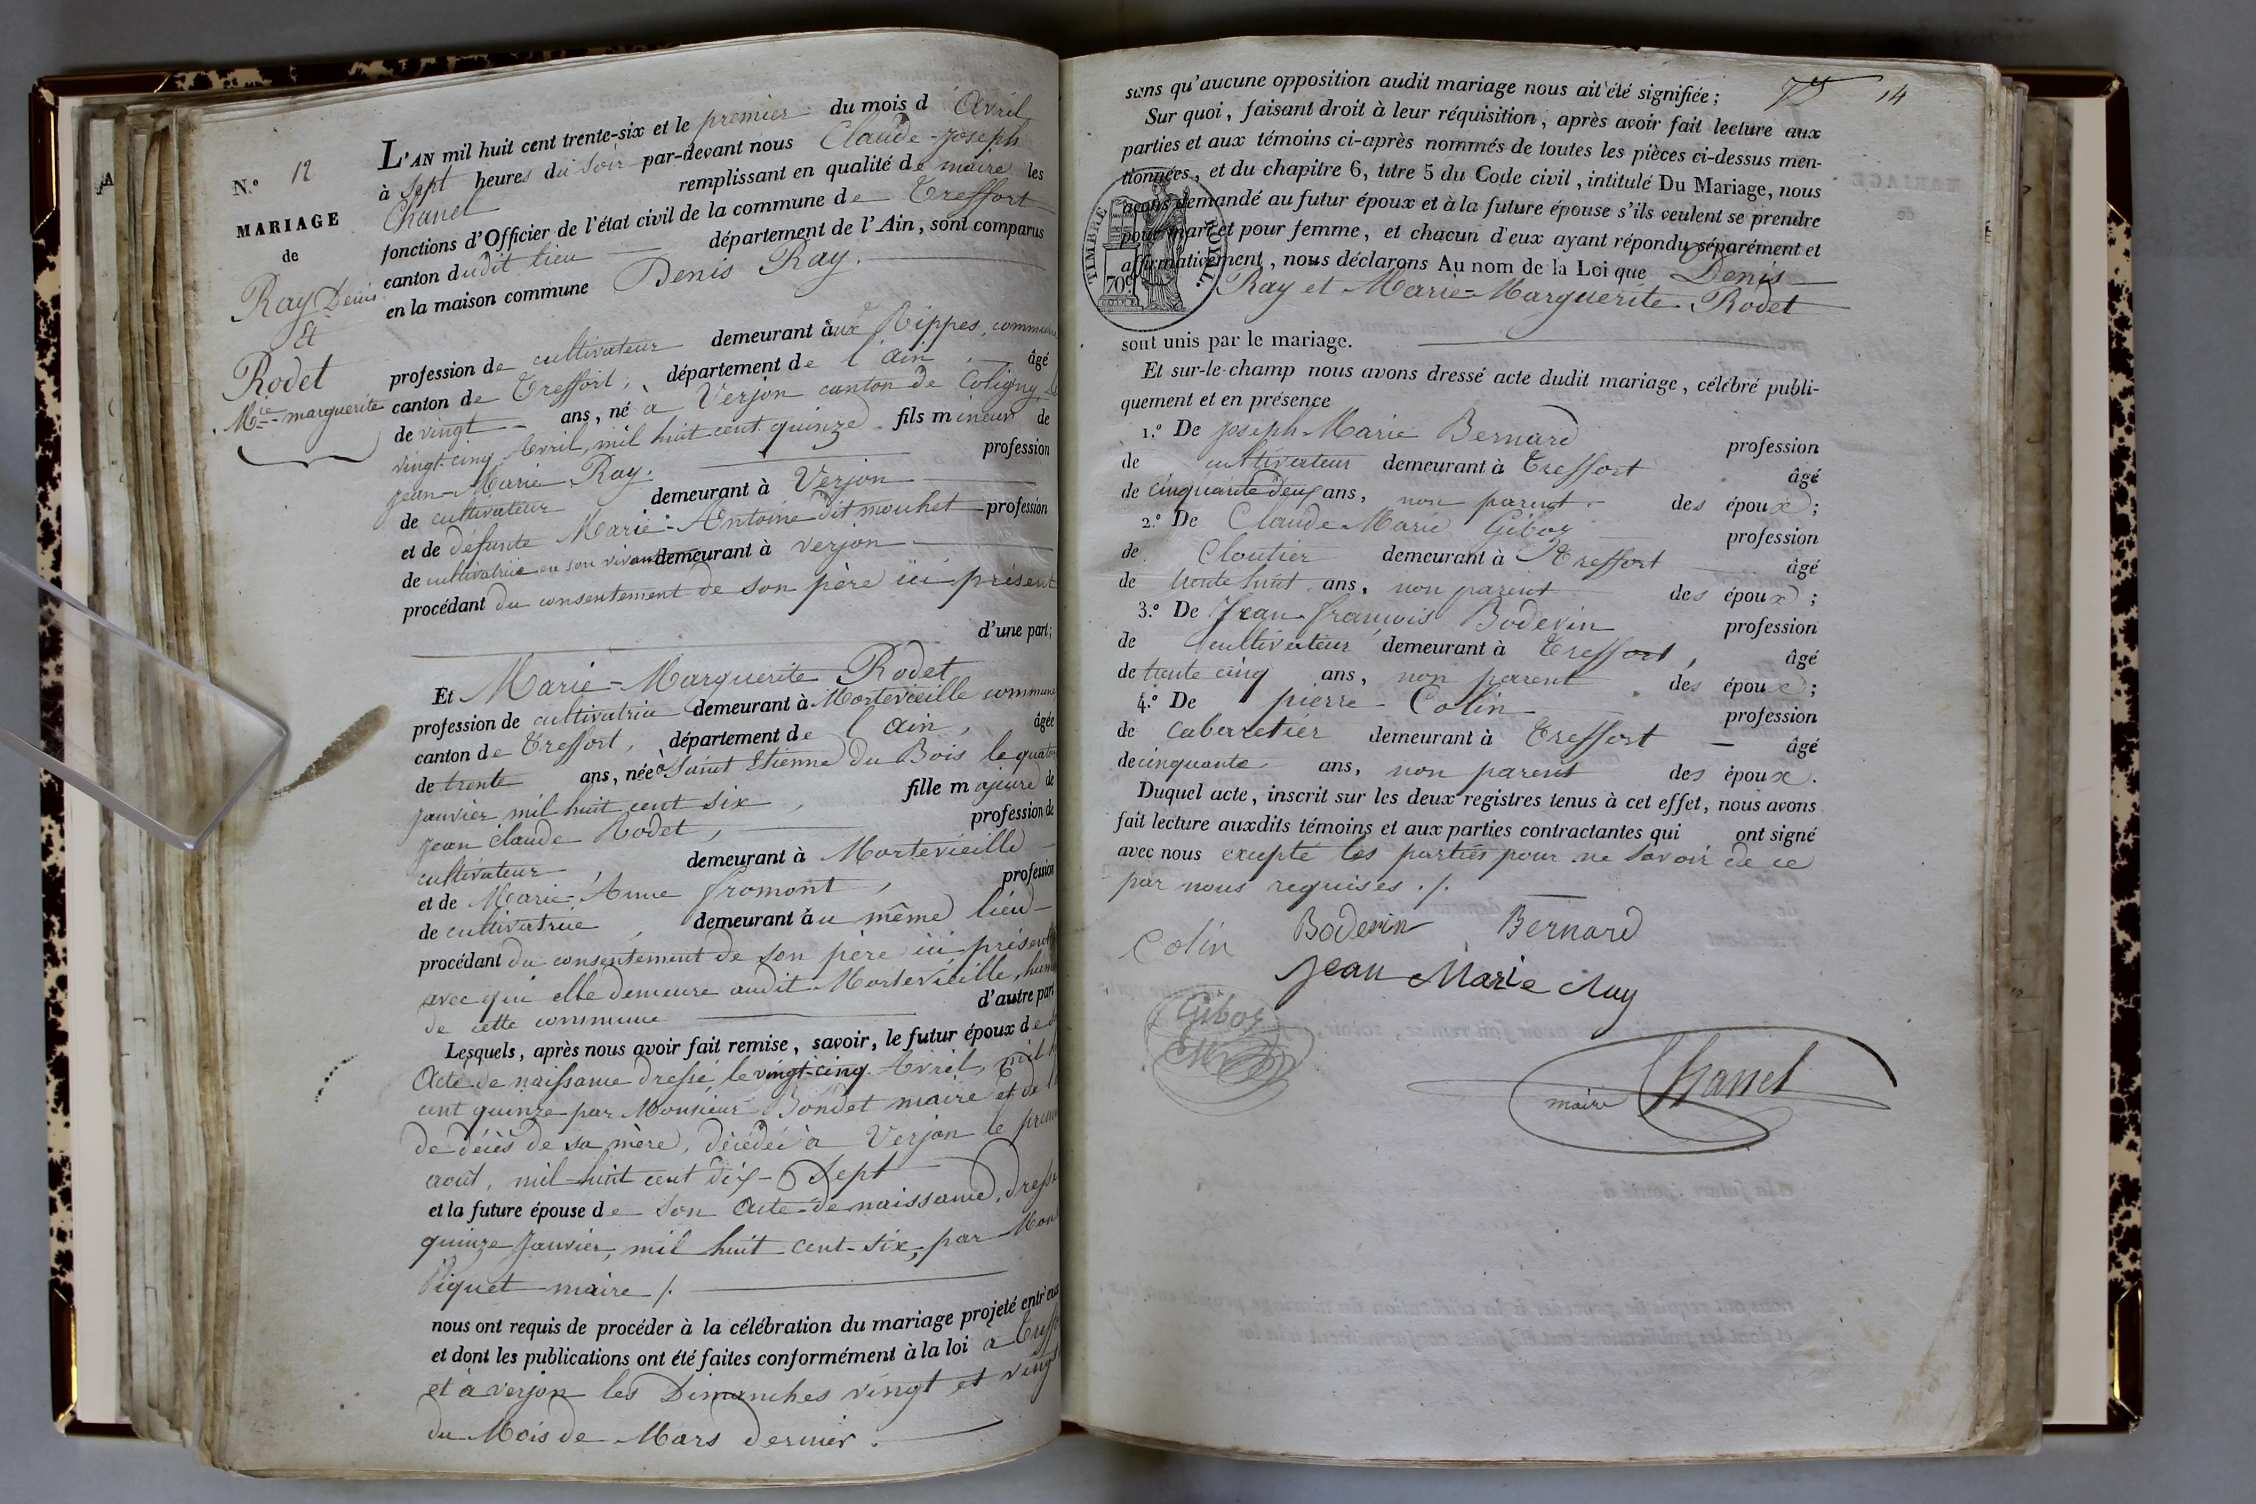 N.° 12
MARIAGE
de
Ray Denis
Et
Rodet
Mie-marguerite
L'AN mil huit cent trente-six et le premier du mois d'Avril
à sept heures du soir par-devant nous Claude-Joseph
Chanel remplissant en qualité de maire les
fonctions d'Officier de l'état civil de la commune de Treffort
canton dudit lieu département de l'Ain, sont comparus
en la maison commune Denis Ray.
profession de cultivateur demeurant aux Rippes, commune
canton de Treffort, département de l'ain, âgé
de vingt ans, né à Verjon canton de Coligny, le
vingt-cinq Avril, mil huit cent quinze fils mineur de
jean-Marie Ray. profession
de cultivateur demeurant à Verjon
et de défunte Marie-Antoine dit mouchet profession
de cultivatrice en son vivant demeurant à verjon
procédant du consentement de son père ici présent
d'une part;
Et Marie-Marguerite Rodet
profession de cultivatrice demeurant à Mortevieille commune
canton de Treffort, département de l'ain, âgée
de trente ans, née à Saint Etienne du Bois le
janvier mil huit cent six, fille majeure de
jean claude Rodet, profession de
cultivateur, demeurant à Mortevieille
et de Marie-Anne fromont, profession
de cultivatrice, demeurant au même lieu
procédant du consentement de son père ici présent
avec qui elle demeure audit Mortevieille,
de cette commune d'autre part
Lesquels, après nous avoir fait remise, savoir, le futur époux de
Acte de naissance dressé le vingt-cinq Avril, mil
cent quinze par Monsieur Bondet maire et de
de décès de sa mère, décédée à Verjon le
août, mil huit cent dix-Sept
et la future épouse de son Acte de naissance, dressé
quinze Janvier, mil huit cent-six, par Mon
Piquet maire /.
nous ont requis de procéder à la célébration du mariage projeté entr'eux
et dont les publications ont été faites conformément à la loi à Treffort
et à verjon les Dimanches vingt et vingt
du Mois de Mars dernier.
75 14
sans qu'aucune opposition audit mariage nous ait été signifiée;
Sur quoi, faisant droit à leur réquisition, après avoir fait lecture aux
parties et aux témoins ci-après nommés de toutes les pièces ci-dessus men-
tionnées, et du chapitre 6, titre 5 du Code civil, intitulé Du Mariage, nous
avons demandé au futur époux et à la future épouse s'ils veulent se prendre
pour mari et pour femme, et chacun d'eux ayant répondu séparément et
affirmativement, nous déclarons Au nom de la Loi que Denis
Ray et Marie-Marguerite Rodet
TIMBRE ROYAL.
70c
sont unis par le mariage.
Et sur-le-champ nous avons dressé acte dudit mariage, célébré publi-
quement et en présence
1.° De Joseph-Marie Bernard profession
de cultivateur demeurant à Treffort âgé
de cinquante deux ans, non parent des époux;
2.° De Claude-Marie Giboz profession
de Cloutier demeurant à Treffort âgé
de trente huit ans, non parent des époux;
3.° De Jean-françois Bodevin profession
de cultivateur demeurant à Treffort, âgé
de trente cinq ans, non parent des époux;
4.° De pierre Colin profession
de Cabaretier demeurant à Treffort âgé
de cinquante ans, non parent des époux.
Duquel acte, inscrit sur les deux registres tenus à cet effet, nous avons
fait lecture auxdits témoins et aux parties contractantes qui ont signé
avec nous excepté les parties pour ne savoir de ce
par nous requises ./.
Colin Bodevin Bernard
Jean Marie Ray
Giboz
CM
maire Chanel